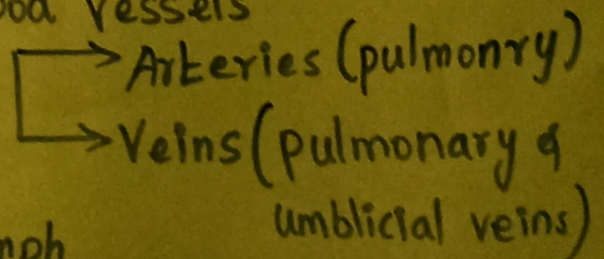 ood vessels
Arteries (pulmonry)
Veins (pulmonary &
umblicial veins)
mph